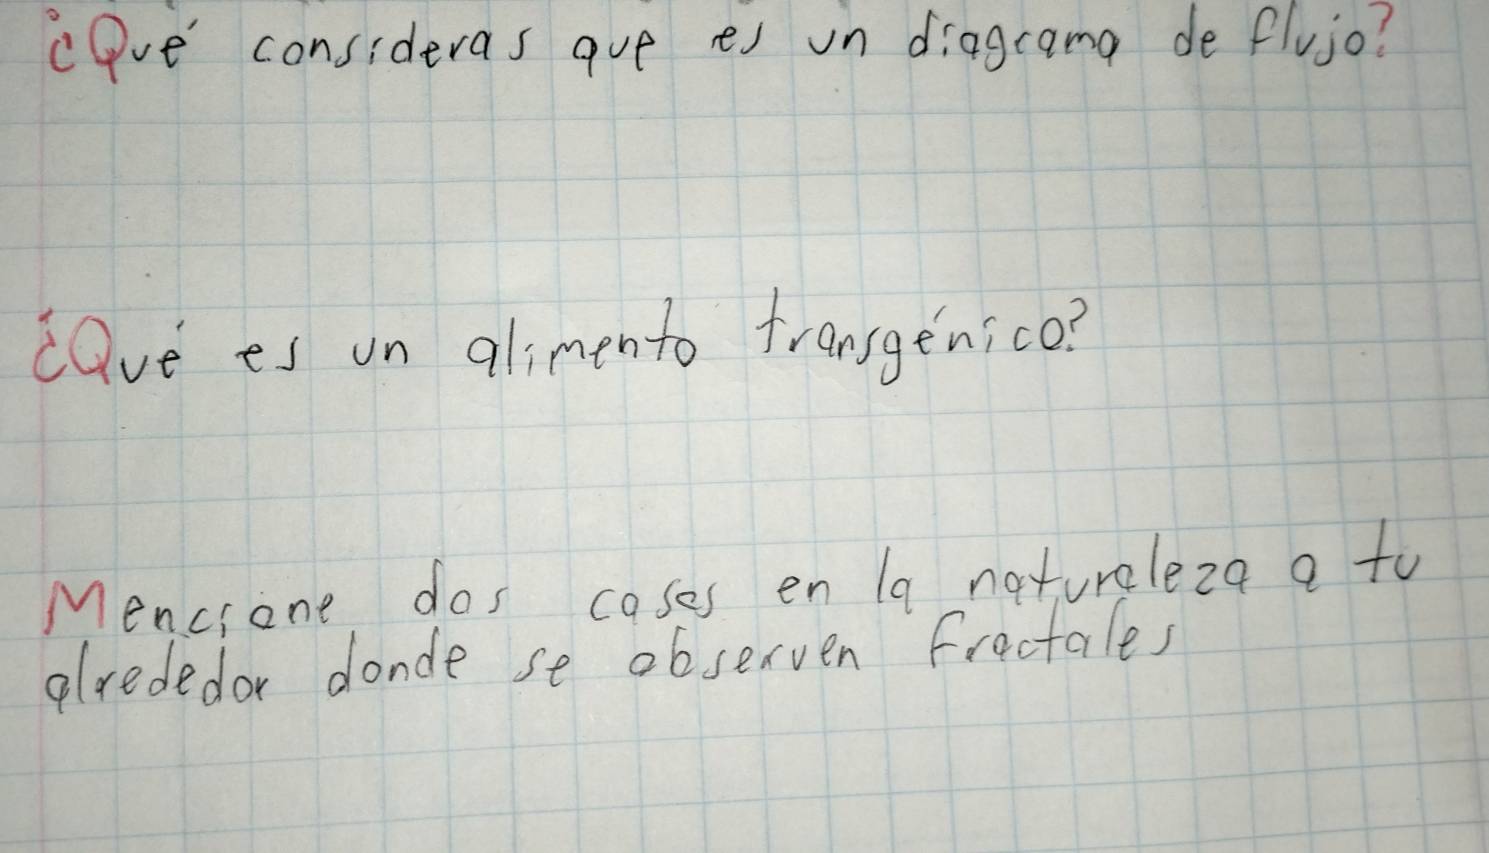 ¿Qué consideras que es un diagrama de flujo?
¿Qué es un alimento transgénico?
Mencione dos casos en la naturaleza a tu
alrededor donde se observen fractales